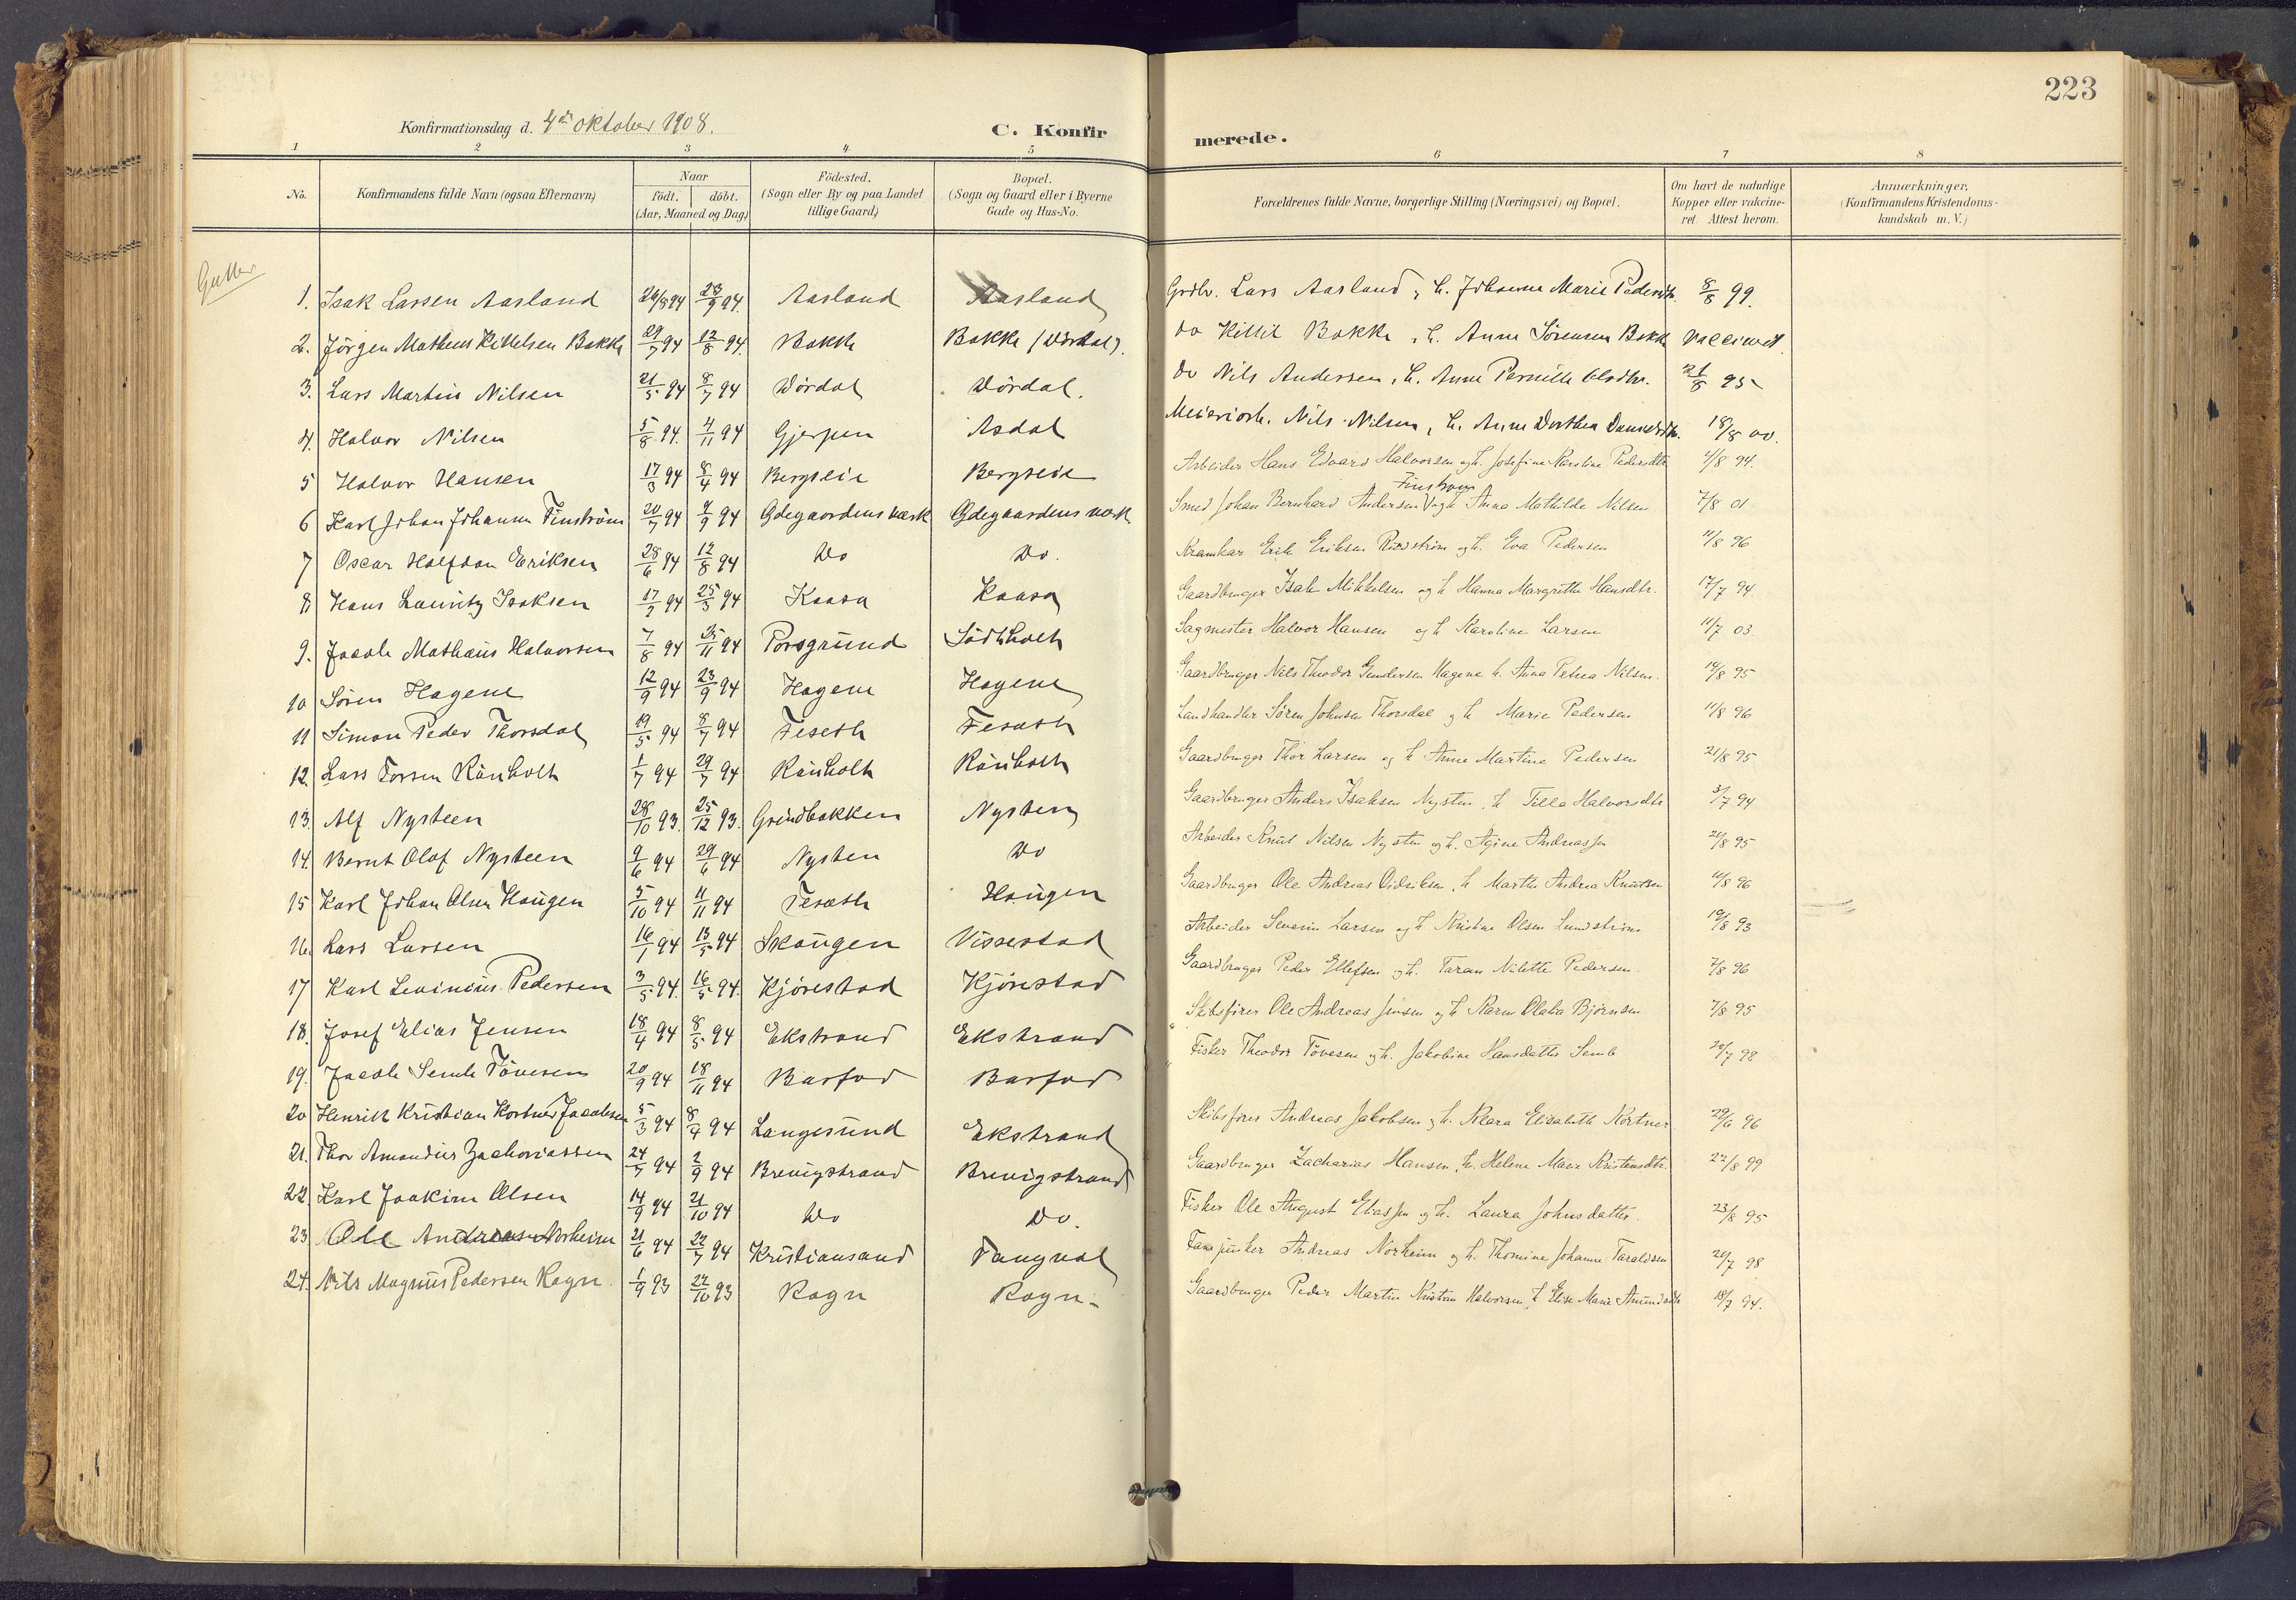 223
Konfirmationsdag d. 4de oktober 1908. C. Konfir merede.
1 2 3 4 5 6 7 8
No. Konfirmandens fulde Navn (ogsaa Efternavn) Naar födt. döbt. (Aar, Maaned og Dag) Födested. (Sogn eller By og paa Landet tillige Gaard) Bopæl. (Sogn og Gaard eller i Byerne Gade og Hus-No. Forældrenes fulde Navne, borgerlige Stilling (Næringsvei) og Bopæl. Om havt de naturlige Kopper eller vakcineret. Attest herom. Anmærkninger. (Konfirmandens Kristendomskundskab m. V.)
Gutter
1. Isak Larsen Aasland 26/8 94 23/9 94. Aasland Aasland Grdbr. Lars Aasland, h. Johanne Marie Pedersdtr. 8/8 99.
2. Jörgen Matheus Kittelsen Bakke 29/7 94 12/8 94. Bakke Bakke (Dördal). do Kittil Bakke, h. Anne Sörensen Bakk vaccineret.
3. Lars Martin Nilsen 21/5 94 8/7 94 Dördal Dördal. do Nils Andersen, h. Anne Pernille Olsdtr. 21/8 95
4. Halvor Nilsen 5/8 94. 4/11 94 Gjerpen Asdal Meieriarb. Nils Nilsen, h. Anne Dorthea 18/8 00.
5 Halvor Hansen 17/3 94 8/4 94 Bergseie Bergseie Arbeider Hans Edvard Halvorsen og h. Josefine Karoline Pedersdtr 4/8 94.
6 Karl Johan Johansen Finström 20/7 94 9/9 94 Ödegaardens værk Ödegaardens værk Smed Johan Bernhard Andersen Finstrøm og h Anna Mathilde Nilsen 7/8 01
7 Oscar Halfdan Eriksen 28/6 94 12/8 94 Do Do. Erik Eriksen og h. Eva Pedersen 11/8 96
8 Hans Lauritz Isaksen 17/2 94 25/3 94 Kaasa Kaasa Gaardbruger Isak Mikkelsen og h Hanna Margrethe Hansdtr. 17/7 94
9. Jacob Mathæus Halvorsen 7/8 94 25/11 94 Porsgrund Södtholt Sagmester Halvor Hansen og h Karoline Larsen 11/7 03
10 Sören Hagene 12/9 94 23/9 94 Hagene Hagene Gaardbruger Nils Theodor Gundersen Hagene h. Anna Petrea Nilsen. 14/8 95
11 Simon Peder Thorsdal 19/5 94 8/7 94 Feseth Feseth Landhandler Sören Johnsen Thorsdal og h Marie Pedersen 11/8 96
12. Lars Torsen Rönholt 1/7 94 29/7 94 Rönholt Rönholt Gaardbruger Thor Larsen og h Anne Martine Pedersen 21/8 95
13. Alf Nysteen 28/10 93. 25/12 93. Grindbakken Nysten Gaardbruger Anders Isaksen Nysten, h Tilla Halvorsdtr 3/7 94
14. Bernt Olaf Nysteen 9/6 94 29/6 94 Nysten Do Arbeider Knut Nilsen Nysten og h. Agine Andreassen 21/8 95
15 Karl Johan Olsen Haugen 5/10 94 11/11 94 Feseth Haugen Gaardbruger Ole Andreas Didriksen, h Marthe Andrea Knutsen 11/8 96
16. Lars Larsen 16/1 94 13/5 94 Skaugen Vissestad Arbeider Severin Larsen og h Kristine Olsen Lundström 19/8 93
17 Karl Levinius Pedersen 3/5 94. 16/5 94. Kjörestad Kjörestad Gaardbruger Peder Ellefsen og h. Taran Nilette Pedersen 7/8 96
18. Josef Elias Jensen 18/4 94 8/5 94 Ekstrand Ekstrand Skibsfører Ole Andreas Jensen og h Karen Olava Bjørnsen 7/8 95
19. Jacob Semb Tövesen 20/9 94 18/11 94 Barfod Barfod Fisker Theodor Tövesen og h. Jakobine Hansdatter Semb 20/7 98
20 Henrik Kristian Kortner Jacobsen 5/3 94 8/4 94 Langesund Ekstrand Skibsfører Andreas Jakobsen og h. Klara Elisabeth Kortner 29/6 96
21. Thor Amandus Zachariassen 24/7 94 2/9 94 Brevigstrand Brevigstrand Gaardbruger Zacharias Hansen, h. Helene Marie Kristensdtr. 22/8 99
22. Karl Joakim Olsen 14/9 94 21/10 94 Do Do. Fisker Ole August Eliassen og h. Laura Johnsdatter. 23/8 95
23 Ole Andreas Norheim 21/6 94 22/7 94 Kristiansand Tangval Andreas Norheim og h. Thomine Johanne Taraldsen 20/7 98
24. Nils Magnus Pedersen Rogn. 1/9 93 22/10 93 Rogn Rogn. Gaardbruger Peder Martin Kristian Halvorsen, h Elise Marie Amundsdtr 18/7 94.